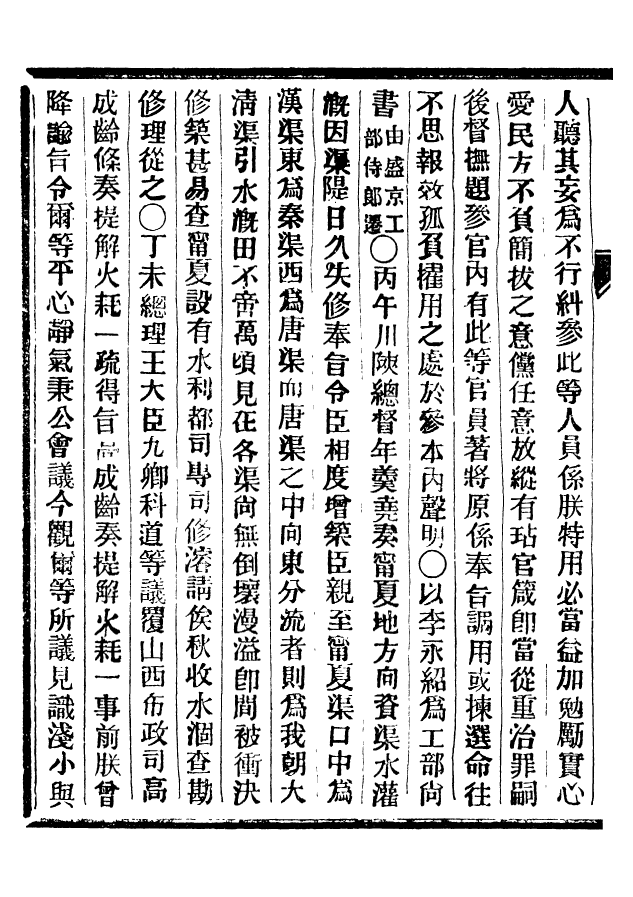 人聽其妄爲不行糾參此等人員係朕特用必當益加勉勵實心
愛民方不負簡拔之意儻任意放縱有玷官箴卽當從重治罪嗣
後督撫題參官內有此等官員著將原係奉旨調用或揀選命往
不思報效孤負擢用之處於參本內聲明〇以李永紹爲工部尙
書由盛京工部侍郎遷〇丙午川陝總督年羹堯奏甯夏地方向資渠水灌
漑因渠隄日久失修奉旨令臣相度增築臣親至甯夏渠口中爲
漢渠東爲秦渠西爲唐渠而唐渠之中向東分流者則爲我朝大
淸渠引水漑田不啻萬頃見在各渠尙無倒壞漫溢卽間被衝決
修築甚易查甯夏設有水利都司專司修濬請俟秋收水涸查勘
修理從之〇丁未總理王大臣九卿科道等議覆山西布政司高
成齡條奏提解火耗一疏得旨高成齡奏提解火耗一事前朕曾
降諭旨令爾等平心靜氣秉公會議今觀爾等所議見識淺小與